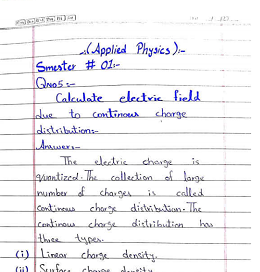 (Applied Physics):-
Smester # 01:-
QNo5:-
Calculate electric field
due to continous charge
distribution:-
Answer:-
The electric charge is
quantized. The collection of large
number of charges is called
continous charge distribution. The
continous charge distribution has
three types.
(i) Linear charge density.
(ii) Surface charge density